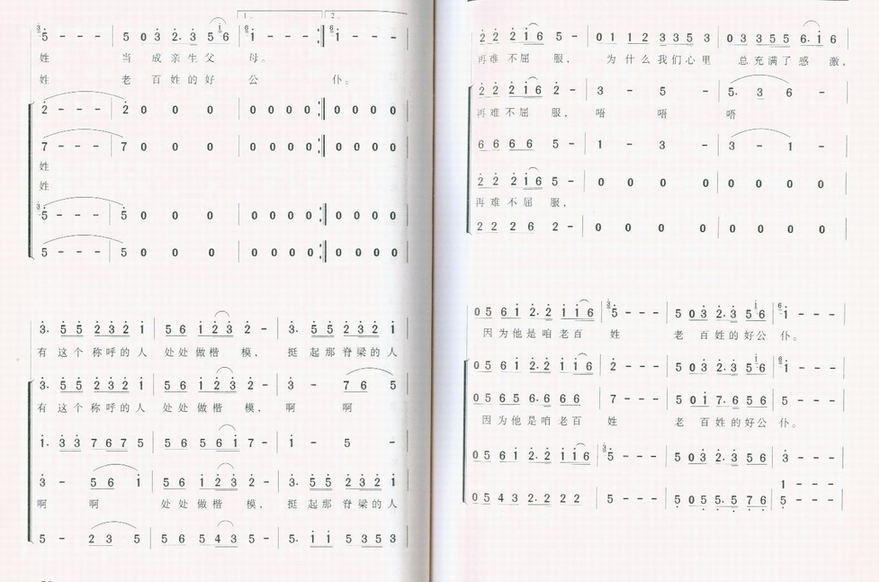 1. 2.
5 - - - 5 0 3 2. 3 5 6 1 - - - 1 - - -
姓 当 成 亲 生 父 母。
姓 老 百 姓 的 好 公 仆。
2 - - - 2 0 0 0 0 0 0 0 0 0 0 0
7 - - - 7 0 0 0 0 0 0 0 0 0 0 0
姓
姓
5 - - - 5 0 0 0 0 0 0 0 0 0 0 0
5 - - - 5 0 0 0 0 0 0 0 0 0 0 0
3. 5 5 2 3 2 1 5 6 1 2 3 2 - 3. 5 5 2 3 2 1
有 这 个 称 呼 的 人 处 处 做 楷 模, 挺 起 那 脊 梁 的 人
3. 5 5 2 3 2 1 5 6 1 2 3 2 - 3 - 7 6 5
有 这 个 称 呼 的 人 处 处 做 楷 模, 啊 啊
1. 3 3 7 6 7 5 5 6 5 6 1 7 - 1 - 5 -
3 - 5 6 1 5 6 1 2 3 2 - 3. 5 5 2 3 2 1
啊 啊 处 处 做 楷 模, 挺 起 那 脊 梁 的 人
5 - 2 3 5 5 6 5 4 3 5 - 5. 1 1 5 3 5 3
2 2 2 1 6 5 - 0 1 1 2 3 3 5 3 0 3 3 5 5 6. 1 6
再 难 不 屈 服, 为 什 么 我 们 心 里 总 充 满 了 感 激,
2 2 2 1 6 2 - 3 - 5 - 5. 3 6 -
再 难 不 屈 服, 唔 唔 唔
6 6 6 6 5 - 1 - 3 - 3 - 1 -
2 2 2 1 6 5 - 0 0 0 0 0 0 0 0
再 难 不 屈 服,
2 2 2 2 6 2 - 0 0 0 0 0 0 0 0
0 5 6 1 2. 2 1 1 6 5 - - - 5 0 3 2. 3 5 6 1 - - -
因 为 他 是 咱 老 百 姓 老 百 姓 的 好 公 仆。
0 5 6 1 2. 2 1 1 6 2 - - - 5 0 3 2. 3 5 6 1 - - -
0 5 6 5 6. 6 6 6 7 - - - 5 0 1 7. 6 5 6 5 - - -
因 为 他 是 咱 老 百 姓 老 百 姓 的 好 公 仆。
0 5 6 1 2. 2 1 1 6 5 - - - 5 0 3 2. 3 5 6 3 - - -
1 - - -
0 5 4 3 2. 2 2 2 5 - - - 5 0 5 5. 5 7 6 5 - - -